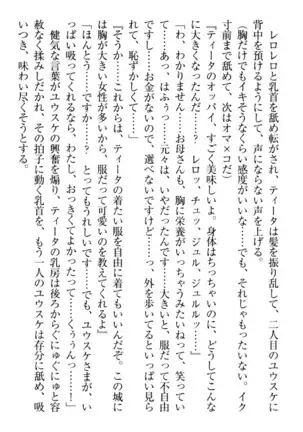 レロレロと乳首を舐め転がされ、ティータは髪を振り乱して、二人目のユウスケに
背中を預けるようにして、声にならない声を上げる。
（胸だけでもイキそうなくらい感度がいいな……でも、それじゃもったいない。イク
寸前まで舐めて、次はオマ×コだ）
『ティータのオッパイ、すごく美味しいよ。身体はちっちゃいのに、どうしてこんな
に大きくなったんだ……？　レロッ、チュッ、ジュル、ジュルルッ……』
「わ、わかりません……お母さんも、胸に栄養がいっちゃうみたいねって、笑ってい
て……あっ、はふぅっ……元々は、いやだったんです……大きいと、服だって不自由
ですし……お金がないので、選べないですけど……っ、外を歩いてるといっぱい見ら
れて、恥ずかしくて……」
『そうか……これからは、ティータの着たい服を自由に着てもいいんだぞ。この城に
は胸が大きい女性が多いから、服だって可愛いのを教えてくれるよ』
「ほんとう……ですかっ……？　とってもうれしいです……ユウスケさまが、いーっ
ぱい吸ってくれるなら、わたし、おっきくてよかったって……ふぁぁっ……！」
健気な言葉がユウスケの興奮を煽り、ティータの乳房は後ろからぐにゅぐにゅと容
赦なく揉みしだかれ、その拍子に動く乳首を、もう一人のユウスケは存分に舐め、吸
いつき、味わい尽くそうとする。